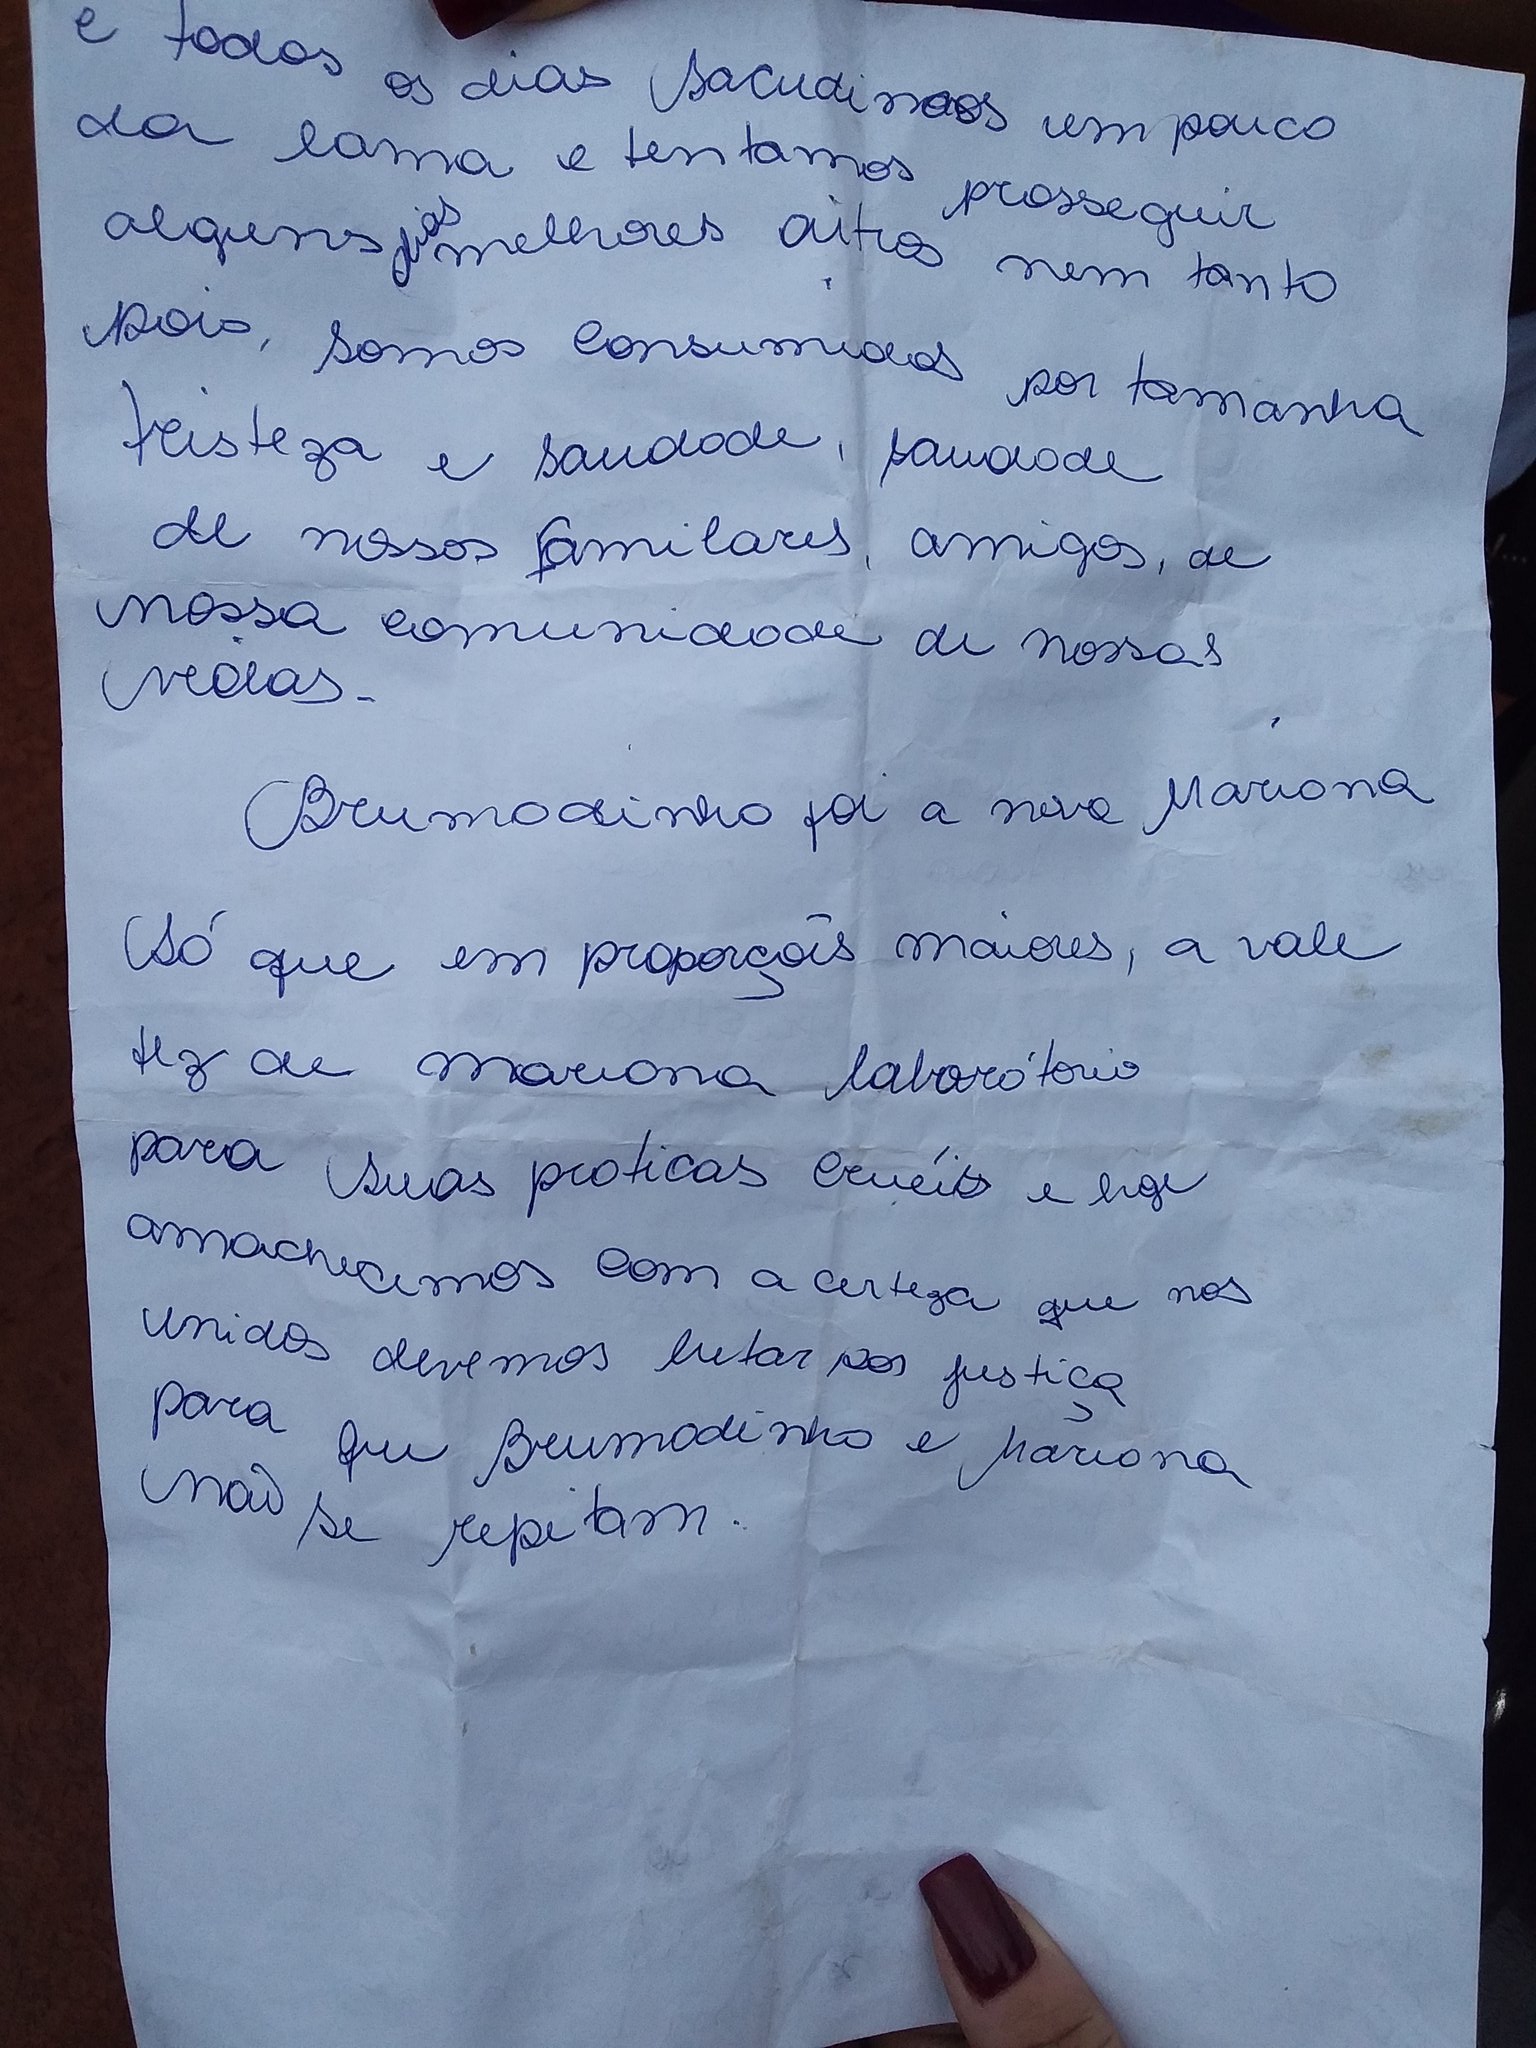 e todos os dias sacudimos um pouco
da lama e tentamos prosseguir
alguns dias melhores outros nem tanto
pois, somos consumidos por tamanha
tristeza e saudade, saudade
de nossos familares, amigos, de
nossa comunidade de nossas
vidas.
Brumadinho foi a nova Mariana
Só que em proporçõis maiores, a vale
fez de mariana laborótorio
para suas praticas cruéis e hoje
amachecemos com a certeza que nos
unidos devemos lutar por justiça
para que Brumadinho e Mariana
não se repitam.